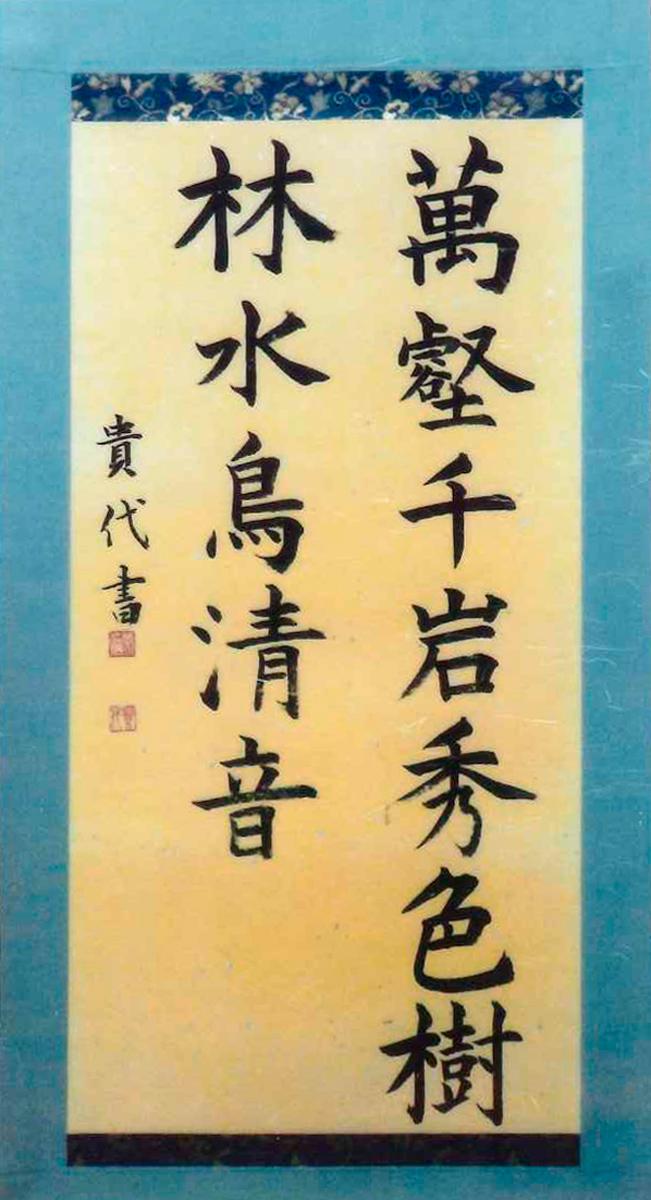 萬壑千岩秀色樹
林水鳥清音
貴代書